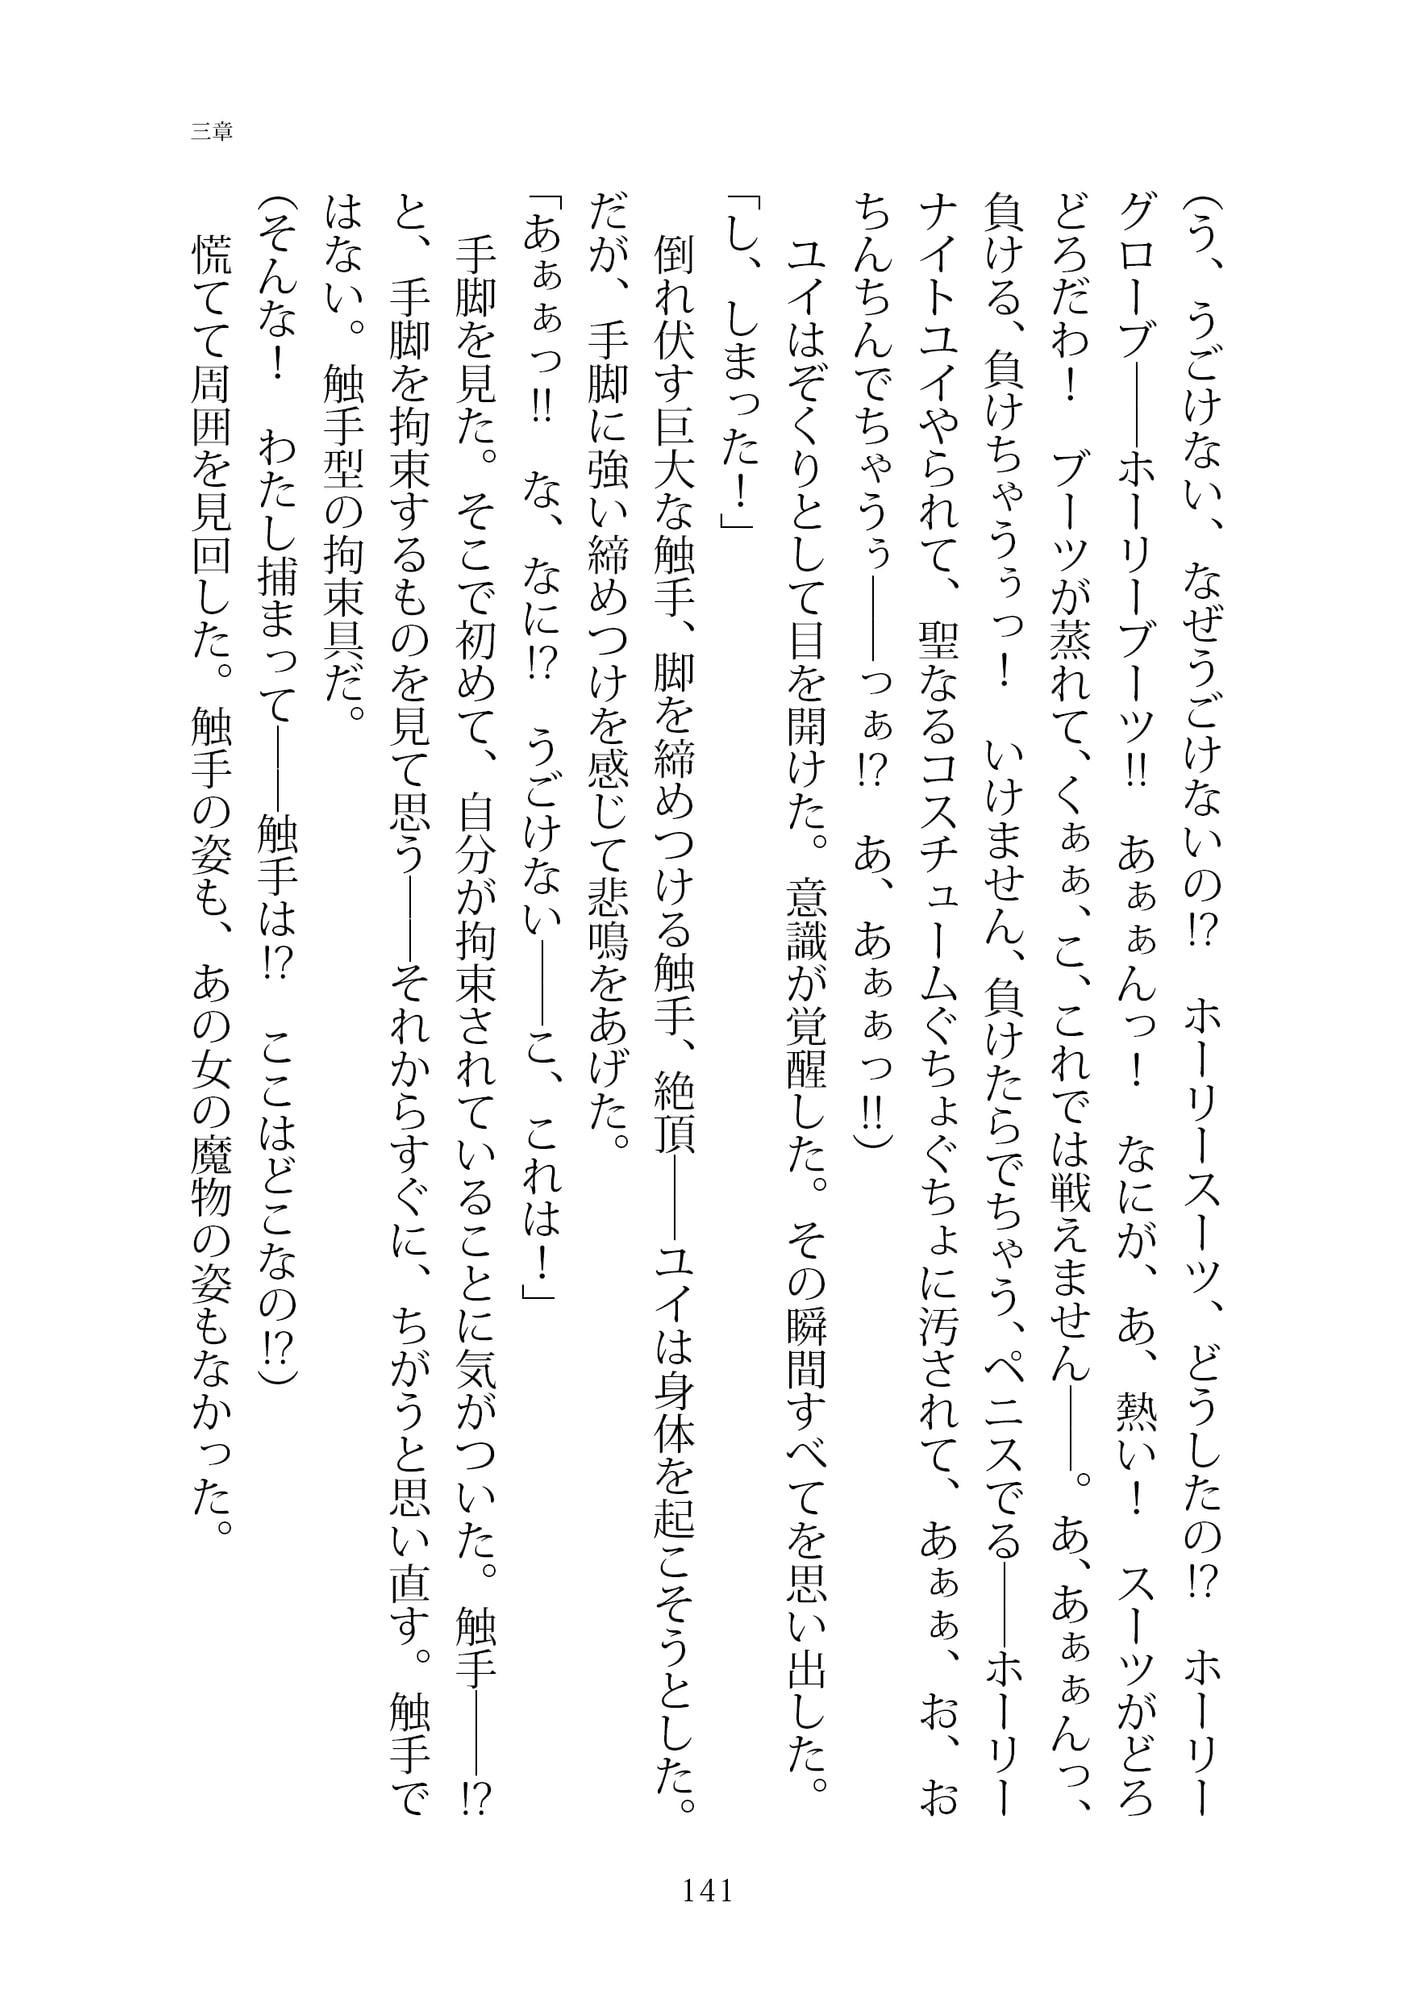 三章
（う、うごけない、なぜうごけないの!?　ホーリースーツ、どうしたの!?　ホーリー
グローブ――ホーリーブーツ!!　あぁぁんっ！　なにが、あ、熱い！　スーツがどろ
どろだわ！　ブーツが蒸れて、くぁぁ、こ、これでは戦えません――。あ、あぁぁんっ、
負ける、負けちゃうぅっ！　いけません、負けたらでちゃう、ペニスでる――ホーリー
ナイトユイやられて、聖なるコスチュームぐちょぐちょに汚されて、あぁぁ、お、お
ちんちんでちゃうぅ――っぁ!?　あ、あぁぁっ!!）
　ユイはぞくりとして目を開けた。意識が覚醒した。その瞬間すべてを思い出した。
「し、しまった！」
　倒れ伏す巨大な触手、脚を締めつける触手、絶頂――ユイは身体を起こそうとした。
だが、手脚に強い締めつけを感じて悲鳴をあげた。
「あぁぁっ!!　な、なに!?　うごけない――こ、これは！」
　手脚を見た。そこで初めて、自分が拘束されていることに気がついた。触手――!?
と、手脚を拘束するものを見て思う――それからすぐに、ちがうと思い直す。触手で
はない。触手型の拘束具だ。
（そんな！　わたし捕まって――触手は!?　ここはどこなの!?）
　慌てて周囲を見回した。触手の姿も、あの女の魔物の姿もなかった。
141